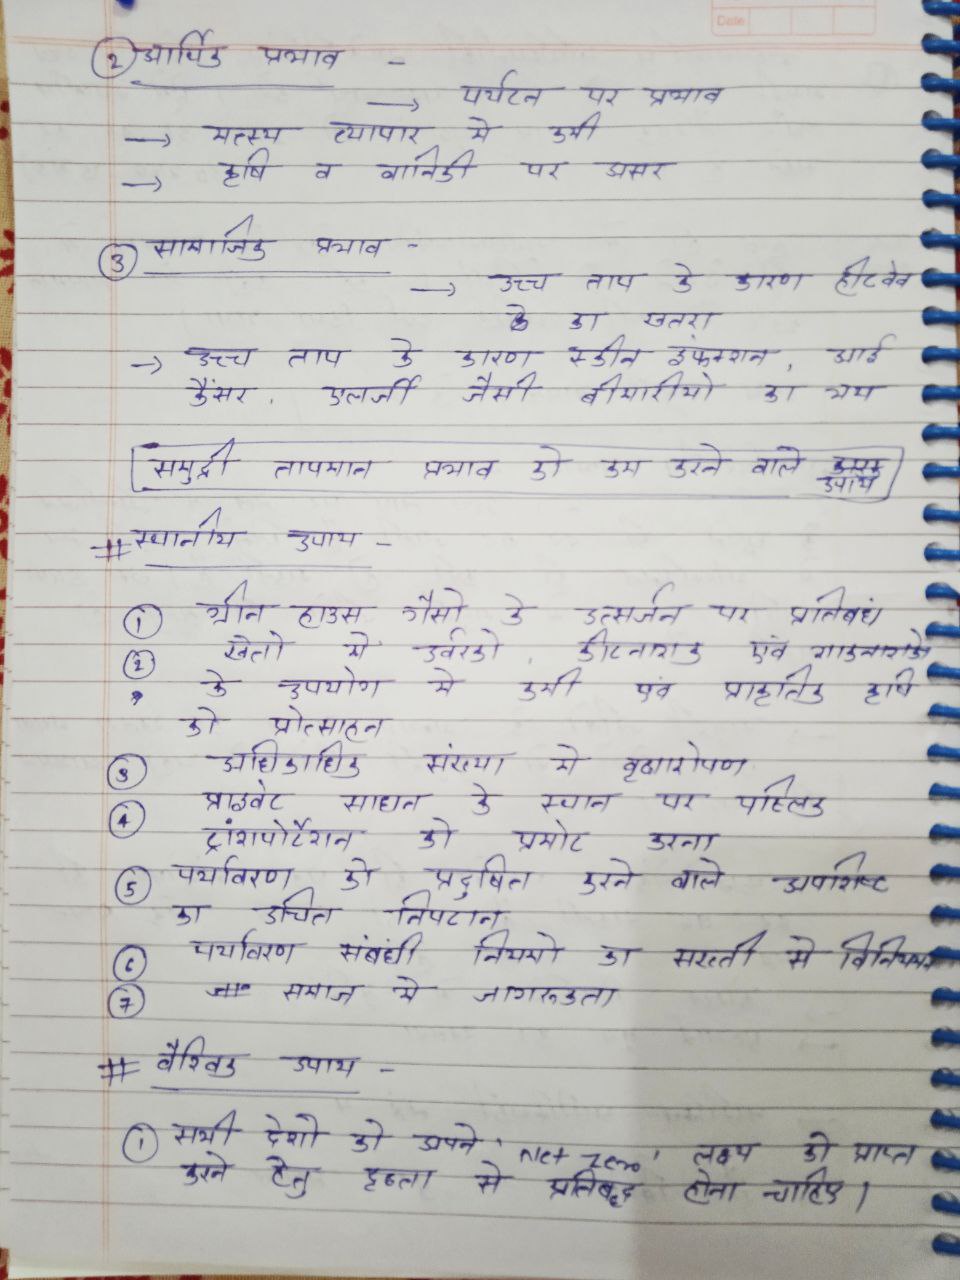 Date
② आर्थिक प्रभाव -
→ पर्यटन पर प्रभाव
→ मत्स्य व्यापार मे कमी
→ कृषि व वानिकी पर असर
③ सामाजिक प्रभाव -
→ उच्च ताप के कारण हीटवेव
का खतरा
→ उच्च ताप के कारण स्कीन इंफेक्शन, आई
कैंसर, एलर्जी जैसी बीमारीयो का भय
समुद्री तापमान प्रभाव को कम करने वाले
उपाय
# स्थानीय उपाय -
① ग्रीन हाउस गैसो के उत्सर्जन पर प्रतिबंध
② खेतो मे उर्वरको, कीटनाशक एवं शाकनाशको
के उपयोग मे कमी एवं प्राकृतिक कृषि
को प्रोत्साहन
③ अधिकाधिक संख्या मे वृक्षारोपण
④ प्राइवेट साधन के स्थान पर पब्लिक
ट्रांशपोर्टेशन को प्रमोट करना
⑤ पर्यावरण को प्रदुषित करने वाले अपशिष्ट
का उचित निपटान
⑥ पर्यावरण संबंधी नियमो का सख्ती से विनियमन
⑦ समाज मे जागरूकता
# वैश्विक उपाय -
① सभी देशो को अपने 'Net Zero' लक्ष्य को प्राप्त
करने हेतु दृढता से प्रतिबद्ध होना चाहिए।